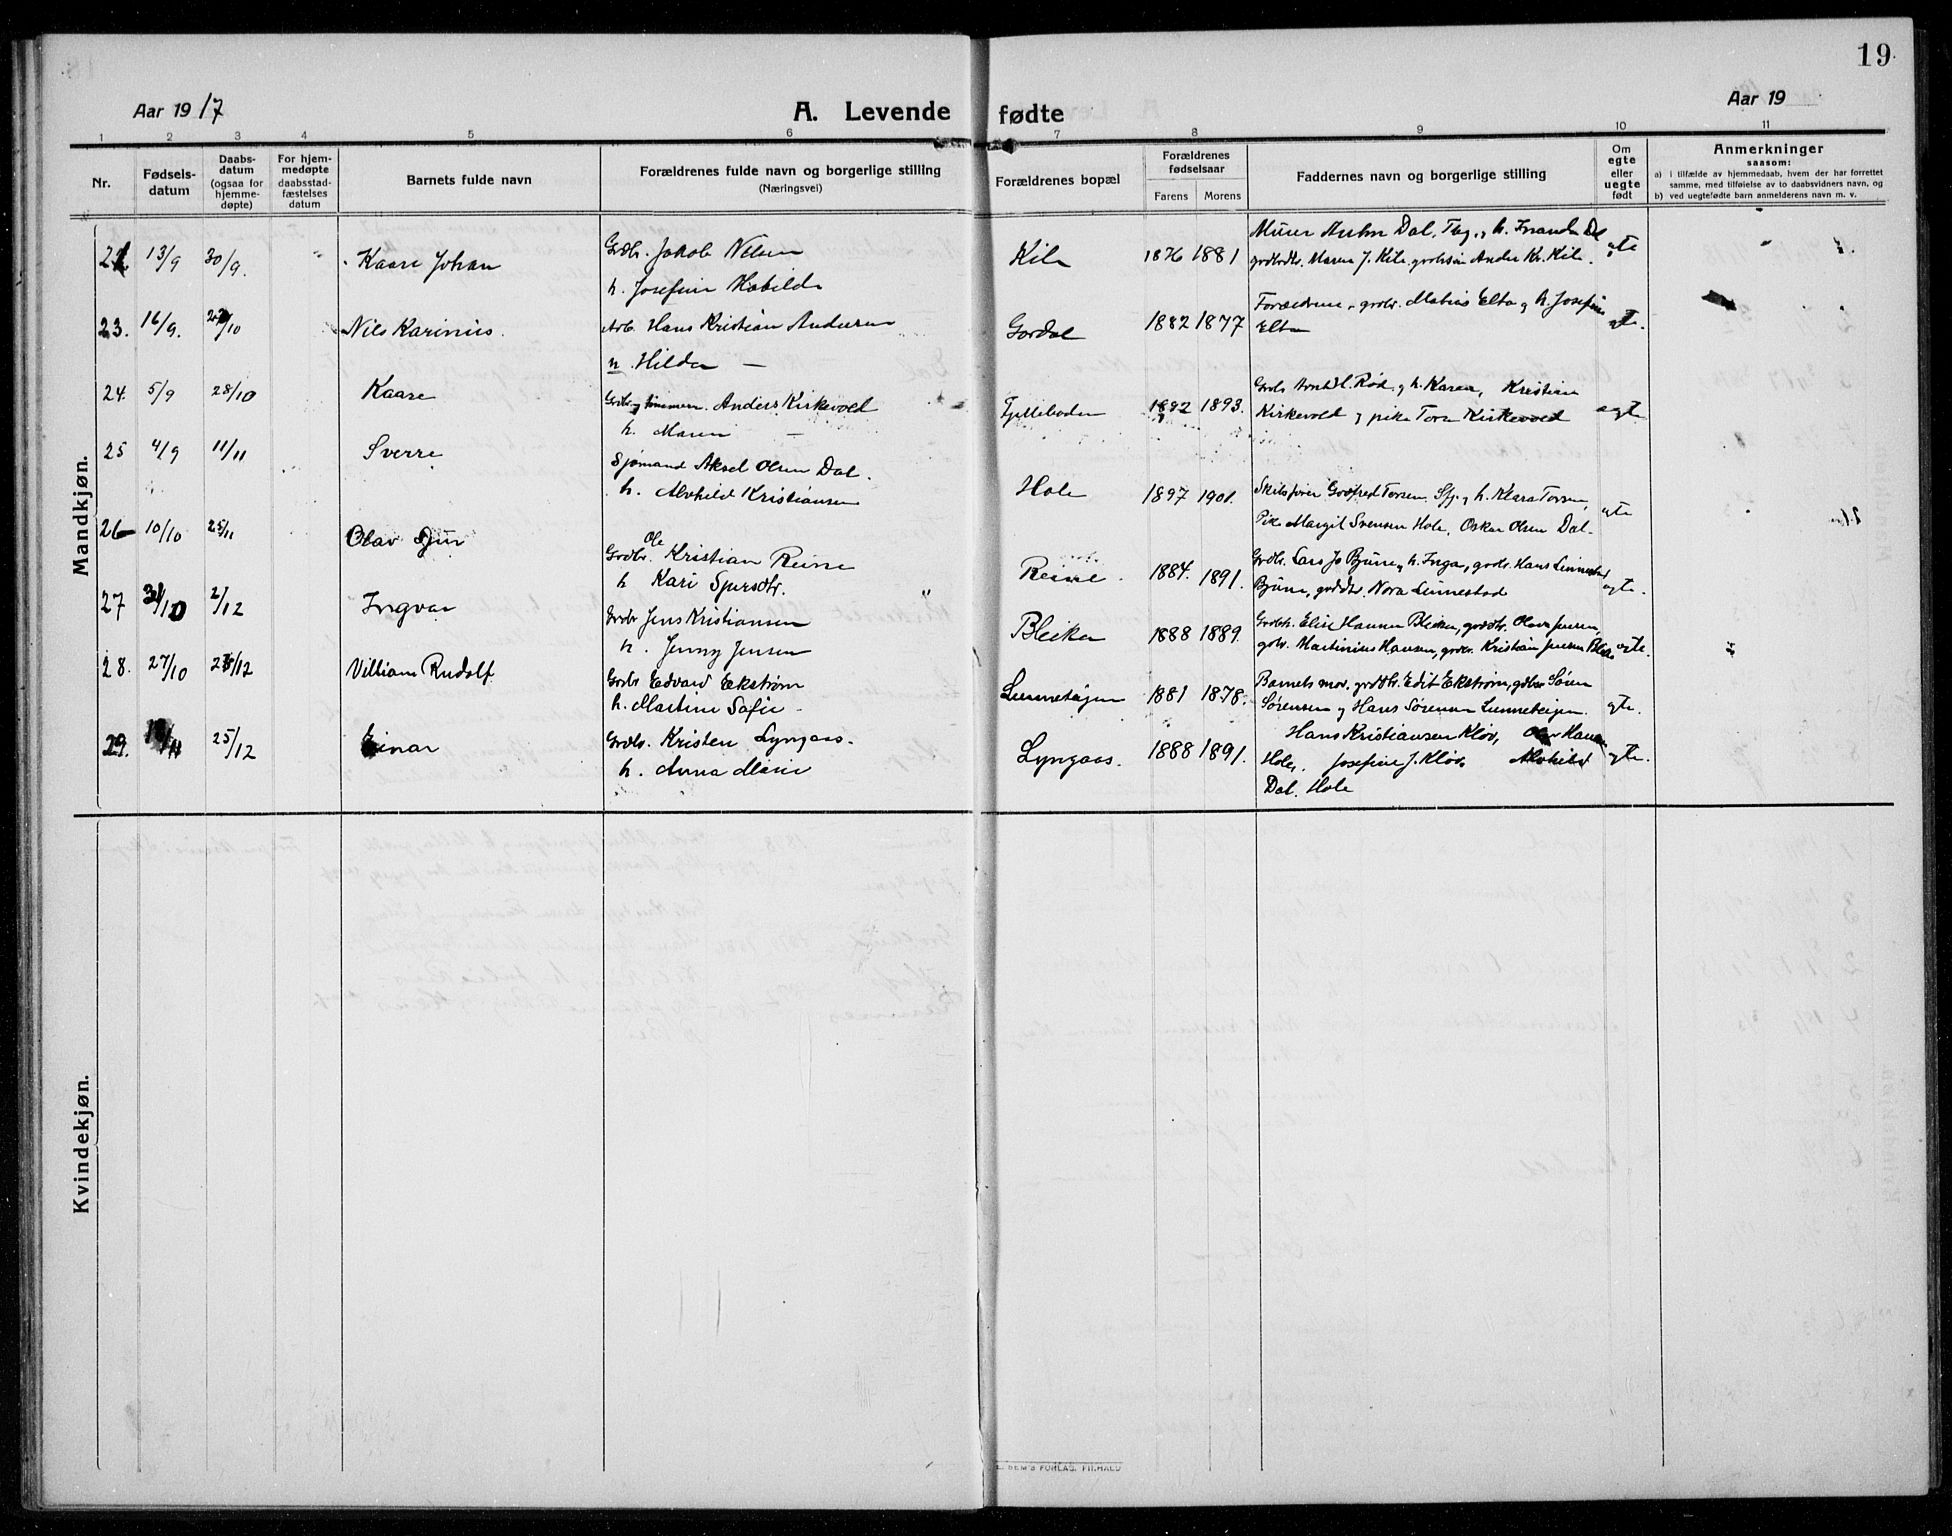 19.
Aar 1917
A. Levende fødte
Aar 19
1 2 3 4 5 6 7 8 9 10 11
Nr.
Fødsels-
datum
Daabs-
datum
(ogsaa for
hjemme-
døpte)
For hjem-
medøpte
daabsstad-
fæstelses
datum
Barnets fulde navn
Forældrenes fulde navn og borgerlige stilling
(Næringsvei)
Forældrenes bopæl
Forældrenes
fødselsaar
Farens Morens
Faddernes navn og borgerlige stilling
Om
egte
eller
uegte
født
Anmerkninger
saasom:
a) i tilfælde av hjemmedaab, hvem der har forrettet
samme, med tilføielse av to daabsvidners navn, og
b) ved uegtefødte barn anmelderens navn m. v.
Mandkjøn.
13/9 30/9. Kaare Johan
Grdbr. Jakob Nilsen
h. Josefine
Kile 1876 1881
Murer Anton Dal, h. Dal
Maren J. Kile, Anders Kr. Kile.
egte
23. 16/9. Nils Karinius.
Arb. Hans Kristian Andersen
h. Hilda —
Gordal 1882 1877
Forældrene, grdbr. Matias Elta og h. Josefine
Elta
egte.
24. 5/9 28/10 Kaare
Anders Kirkevold
h. Maren —
1892 1893.
Rød, og h. Karen, Kristian
Kirkevold og pike Tora Kirkevold
egte
25 4/9 11/11 Sverre
Sjømand Aksel Olsen Dal.
h. Alvhild Kristiansen
Hole 1897 1901.
Godfred Torsen, og h. Klara Torsen,
Pike Margit Svensen Hole, Oskar Olsen Dal.
egte
26 10/10 25/11 Olav
Grdbr. Ole Kristian Reine
h Kari Sjursdtr.
Reine. 1884. 1891.
Grdbr. Lars J. Bjune, h. Inga, grdbr. Hans Linnestad
Bjune, Nora Linnestad
egte.
27 2/12 Ingvar
Grdbr Jens Kristiansen
h. Jenny Jensen
Bleiken 1888 1889.
Elise Hansen Bleiken, Olava Jensen,
Martinius Hansen, Kristian Jensen
egte.
28. 27/10 Villiam Rudolf
Grdbr Edvard Ekstrøm
h. Martine Sofie -
Linneteigen 1881 1878.
Barnets mor, Edit Ekstrøm, Søren
Sørensen og Hans Sørensen Linneteigen.
egte.
29. 25/12 Einar
Grdbr. Kristen Lyngaas.
h. Anna Marie
Lyngaas. 1888 1891.
Hans Kristiansen Kløv, Olav Hansen
Hole, Josefine J. Kløv, Alvhild
Dal, Hole
egte.
Kvindekjøn.